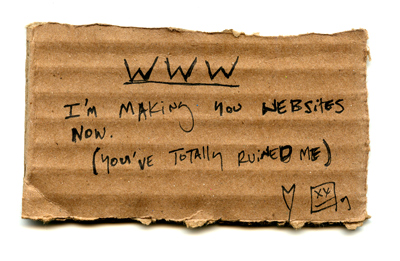 WWW
I'M MAKING YOU WEBSITES
NOW.
(YOU'VE TOTALLY RUINED ME)